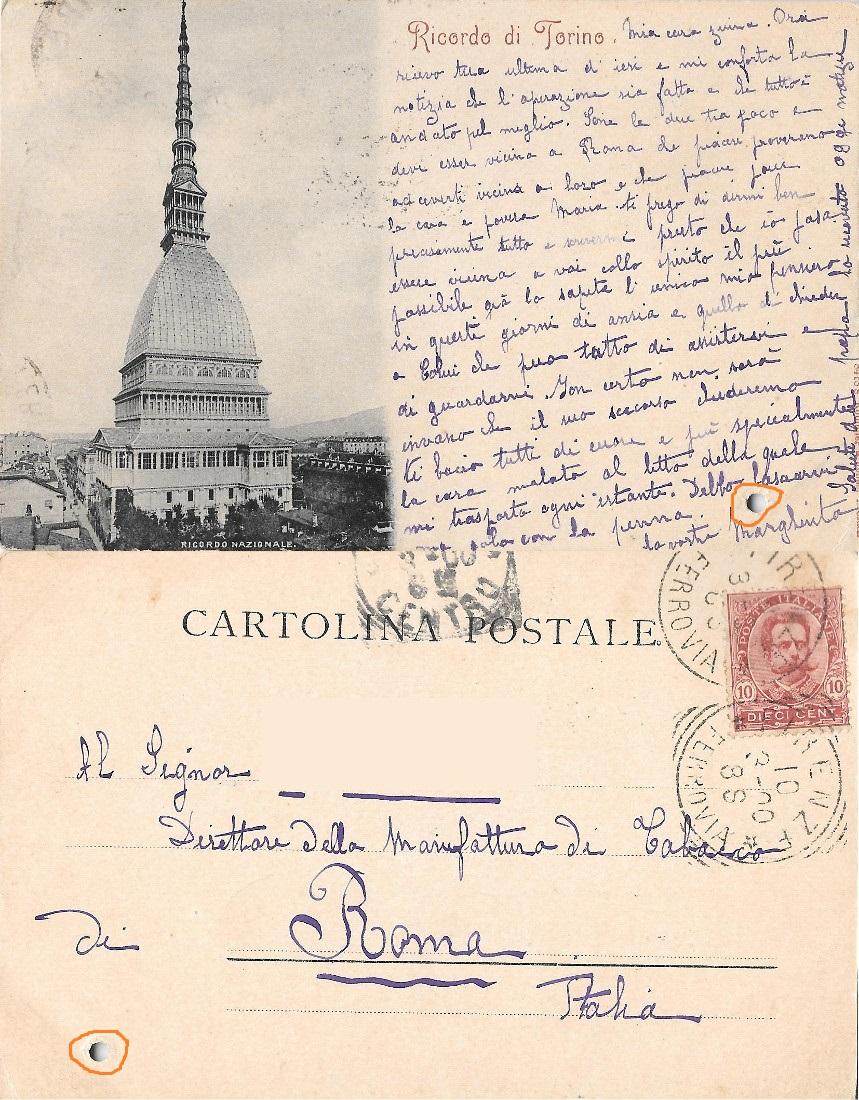 Ricordo di Torino. Mia cara zuina. Ora
ricevo tua ultima d'ieri e mi conforta la
notizia che l'operazione sia fatta e che tutto è
andato pel meglio. le due tra poco e
devi esser vicina a Roma che piacere proveranno
ad averti vicina a loro e che piacere
la cara e povera Maria. ti prego di dirmi ben
tutto e scrivermi presto che io possa
essere vicina a voi collo spirito il più
possibile già lo sapete l'unico mio pensiero
in questi giorni di ansia e quello di chieder
a Colui che può tutto di assistervi e
di guardarvi. Son certa non sarà
invano che il suo soccorso chiederemo
ti bacio tutti di cuore e più specialmente
la cara malata al letto della quale
mi trasporto ogni istante. Debbo lasciarvi
ma solo con la penna. la vostra Margherita
papà ho ricevuto oggi notizie
RICORDO NAZIONALE.
CENTRO
CARTOLINA POSTALE.
FERROVIA
POSTE ITALIANE
10 10
DIECI CENT
FIRENZE
10
3-00
8S
FERROVIA
Al Signor
Direttore della Manifattura dei Tabacco
di Roma
Italia